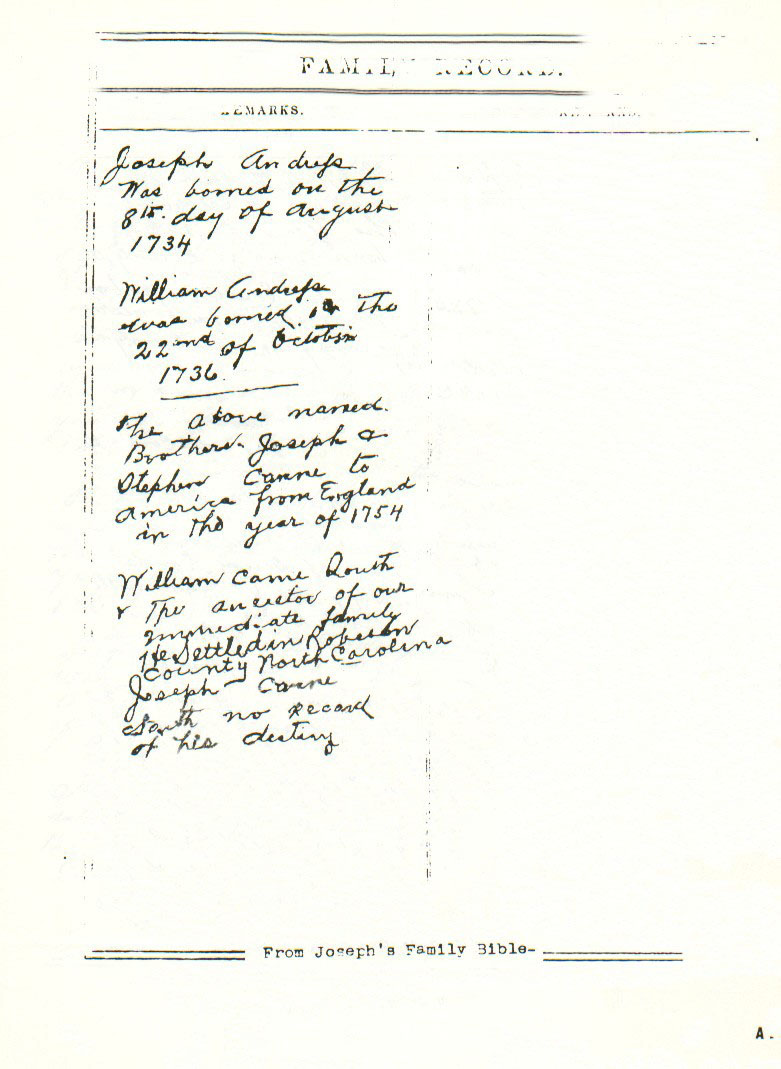 FAMILY RECORD.
REMARKS.
Joseph Andress
Was borned on the
8th. day of August
1734
William Andress
was borned in the
22nd of October
1736.
The above named
Brothers Joseph &
Stephen Came to
America from England
in the year of 1754
William Came South
& The ancestor of our
immediate family
He Settled in Robeson
County North Carolina
Joseph Came
South no record
of his destiny
From Joseph's Family Bible-
A.